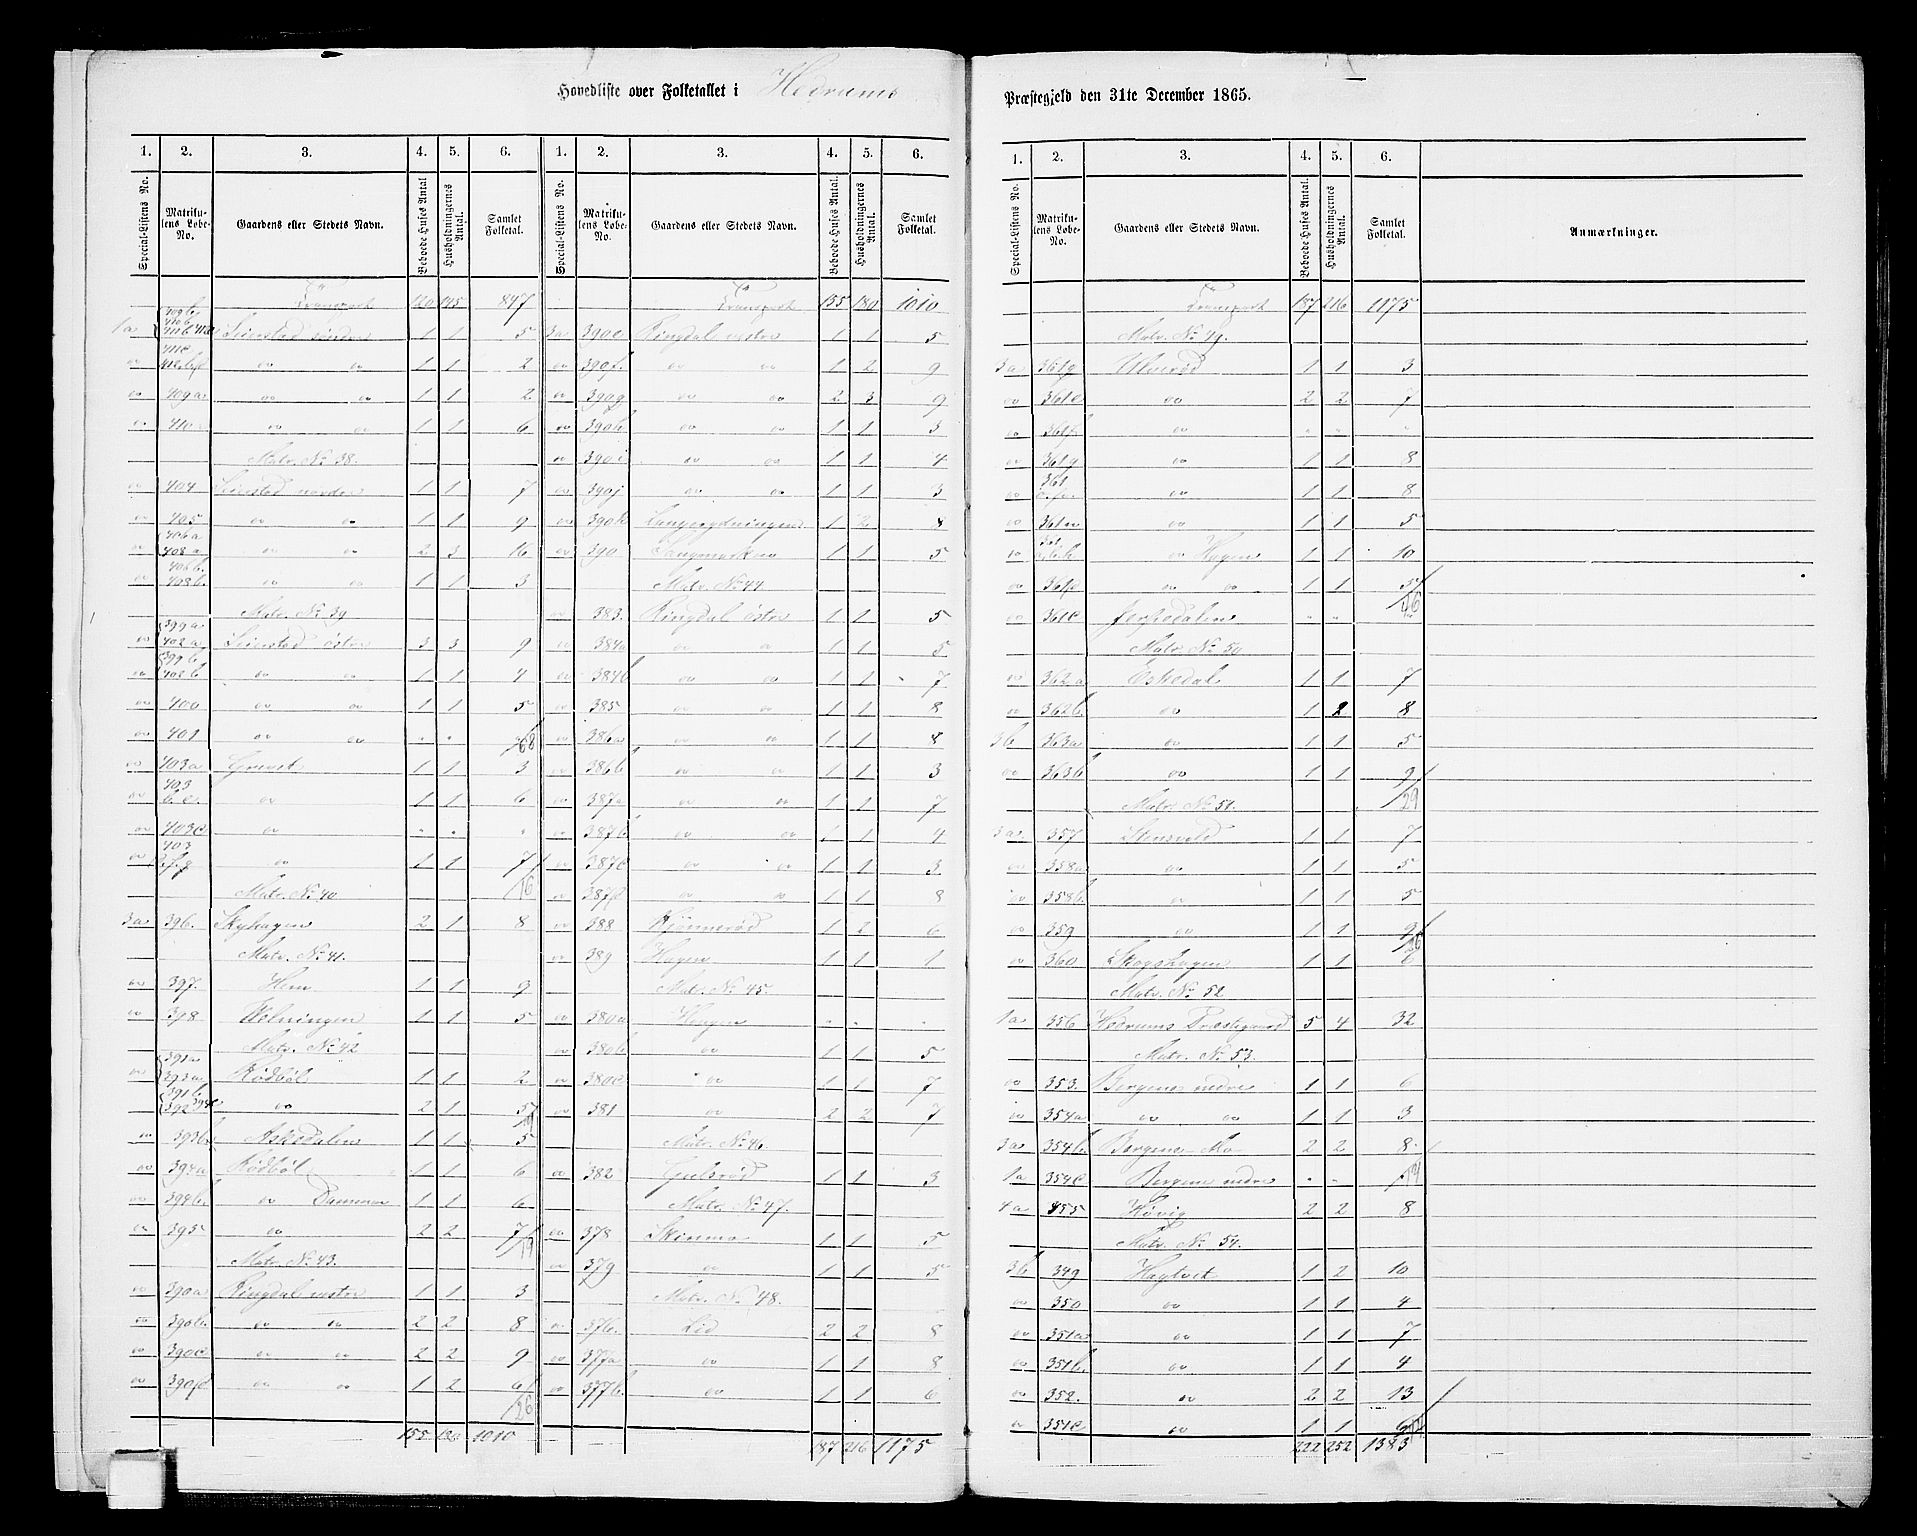 Hovedliste over Folketallet i Hedrums
Præstegjeld den 31te December 1865.
1. 2. 3. 4. 5. 6. 1. 2. 3. 4. 5. 6.
Special-Listens No. Matrikulens Løbe-No. Gaardens eller Stedets Navn. Beboede Huses Antal Husholdningernes Antal. Samlet Folketal.
Transport 120 145 847
1a 409b 410b 411b 412a Seierstad søndre 1 1 5
" 411c 412.b.c 1 1 2
" 409a " " 1 1 2
" 410 " " 1 1 6
Matr. No 38.
" 404 Seierstad nordre 1 1 7
" 405 " " 1 1 9
" 406a 408a " " 2 3 16
" 406b 408b. " " 1 1 3
Matr. No 39
" 399a 402a Seierstad østre 3 3 9
" 399b 402b " " 1 1 4
" 400 " " 1 1 5
" 401 " " " " "
68
" 403a 1 1 3
" 403 b.c. " 1 1 6
" 403e " " " "
" 403 1 1 7
16
Matr. No 40
3a 396. Skyhagen 2 1 8
Matr. No 41.
" 397. Hem 1 1 9
" 398 1 1 5
Matr. No 42
" 391a 393a Rødbøl 1 1 2
" 391b 392 394c " 2 1 5
" 393b Askedalen 1 1 5
" 394a Rødbøl 1 1 6
" 394b. " Dammen 1 1 6
" 395 " 2 2 7
19
Matr. No 43.
" 390a Ringdal vestre 1 1 3
" 390b. " " 2 2 8
" 390c " " 2 2 9
" 390d " " 1 2 6
26
155 180 1010
Transport 155 180 1010
3a 390e Ringdal vestre 1 1 5
" 390f. " " 1 2 9
" 390g " " 2 3 9
" 390h " " 1 1 3
" 390i " " 1 1 4
" 390j " " 1 1 3
" 390k Langrydningen 1 2 8
" 390 Langmarken 1 1 5
Matr. No 44
" 383. Ringdal østre 1 1 5
" 384a " " 1 1 5
" 384b " " 1 1 7
" 385 " " 1 1 8
" 386a " " 1 1 8
" 386b " " 1 1 3
" 387a " " 1 1 7
" 387b " " 1 1 4
" 387c " " 1 1 3
" 387d " " 1 1 8
" 388 Hjønnerød 1 2 6
" 389 Hagen 1 1 1
Matr. No 45.
" 380a Hagen " " "
" 380b " 1 1 5
" 380c " 1 1 7
" 381 " 2 2 7
Matr. No 46.
" 382 Gulsrød 1 1 3
Matr. No 47.
" 378 Skinmo 1 1 5
" 379 " 1 1 5
Matr. No 48.
" 376. Lid 2 2 8
" 377a " 1 1 8
" 377b. " 1 1 6
187 216 1175
1. 2. 3. 4. 5. 6.
Special-Listens No. Matrikulens Løbe-No. Gaardens eller Stedets Navn. Beboede Huses Antal. Husholdningernes Antal. Samlet Folketal. Anmærkninger.
Transport 187 216 1175
Matr. No 49.
3a 361g Ulverød 1 1 3
" 361c " 2 2 7
" 361f " " " "
" 361g " 1 1 8
" 361 " 1 1 8
" 361n " 1 1 5
" " Hagen 1 1 10
" 361d " " 1 1 5
46
" 361e " " "
Matr. No 50
" 362a Eskedal 1 1 7
" 362b. " 1 2 8
3b 363a " 1 1 5
" 363b " 1 1 9
29
Matr. No 51.
3a. 357 Stensvold 1 1 7
" 358a " 1 1 5
" 358b " 1 1 5
" 359 " 1 1 9
26
" 360 Skogshagen 1 1
Matr. No 52
1a 356 Hedrums Præstegaard 5 4 32
Matr. No 53.
" 353. Bergene nedre 1 1 6
" 354a " " 1 1 3
3a 354b. Bergene Mo 2 2 8
1a 354c Bergene nedre " "
4a 455 Høvig 2 2 8
Matr. No 54.
3b 349 Hagtvet 1 2 10
" 350 " 1 1 4
" 351a " 1 1 7
" 351b. " 1 1 4
" 352. " 2 2 13
" 351c " 1 1 6
222 252 1383